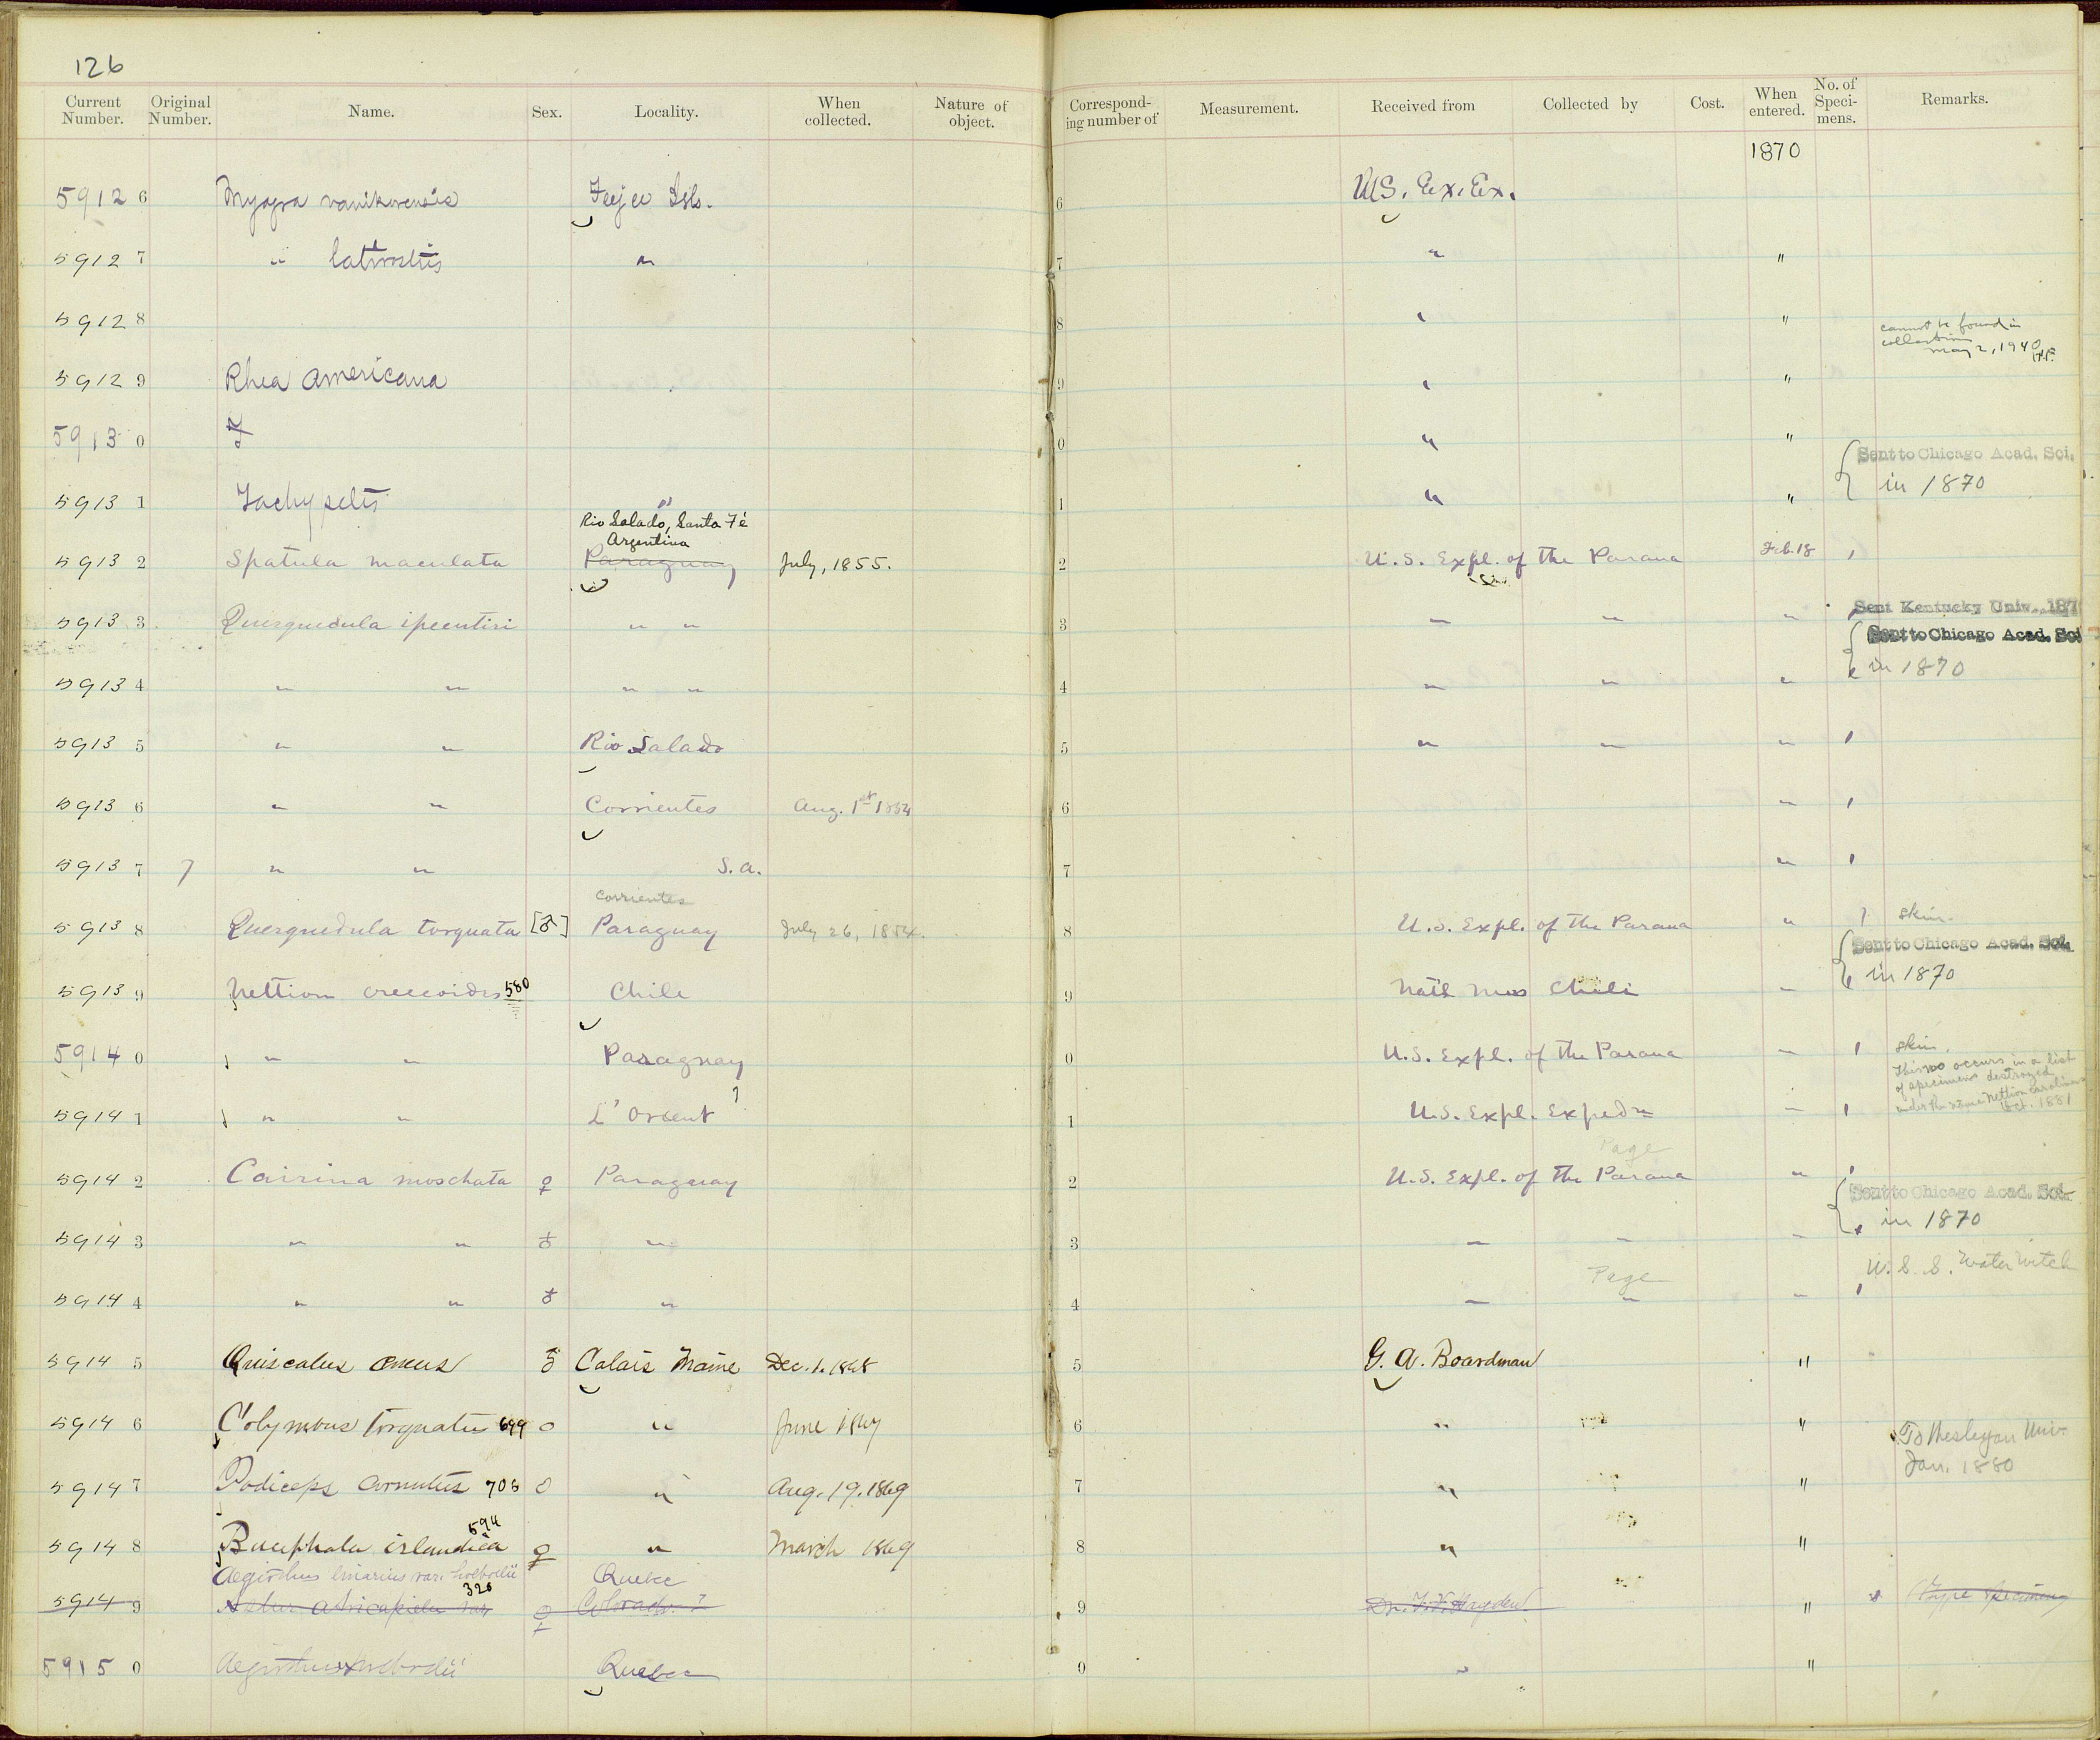 126
Current Number. Original Number. Name. Sex. Locality. When collected. Nature of object. Corresponding number of Measurement. Received from Collected by Cost. When entered. No. of Specimens. Remarks.
1870
59126 Myiagra vanikorensis Feejee Isls. 6 U.S. Ex. Ex.
59127 " latirostris " 7 " "
59128 8 " "
cannot be found in collection May 2, 1940
59129 Rhea americana 9 " "
59130 0 " "
Sent to Chicago Acad. Sci. in 1870
59131 Tachypetes " 1 " "
Rio Salado, Santa Fé Argentina
59132 Spatula maculata Paraguay July, 1855. 2 U.S. Expl. of the Parana Feb. 18 1
59133 Querquedula ipecutiri " " 3 " " " Sent Kentucky Univ. 187
Sent to Chicago Acad. Sci in 1870
59134 " " " " 4 " " "
59135 " " Rio Salado 5 " " " 1
59136 " " Corrientes Aug. 1st 1854 6 " 1
59137 7 " " S.A. 7 " 1
Corrientes
59138 Querquedula torquata [♂] Paraguay July 26, 1854. 8 U.S. Expl. of the Parana " 1 skin.
Sent to Chicago Acad. Sci. in 1870
59139 Nettion creccoides 580 Chile 9 Nat'l Mus Chili "
59140 " " Paraguay 0 U.S. Expl. of the Parana " 1 skin.
This no occurs in a list of specimens destroyed under the name Nettion carolinensis Oct. 1881
59141 " " L'Orient ? 1 U.S. Expl. Expedn " 1
Page
59142 Cairina moschata ♀ Paraguay 2 U.S. Expl. of the Parana " 1
Sent to Chicago Acad. Sci. in 1870
59143 " " ♂ " 3 " " "
Page U.S.S. Water Witch
59144 " " ♂ " 4 " " " 1
59145 Quiscalus aeneus ♂ Calais Maine Dec. 1. 1868 5 G. A. Boardman "
59146 Colymbus torquatus 699 o " June 1867 6 " "
To Wesleyan Univ. Jan. 1880
59147 Podiceps cornutus 706 o " Aug. 19. 1869 7 " "
59148 Bucephala islandica 594 ♀ " March 1869 8 " "
Aegiothus linarius var. holboellii Quebec
59149 Astur atricapilla var. 328 ♀ Colorado ? 9 Dr. F. V. Hayden "
Type specimen
59150 Aegiothus holboellii Quebec 0 " "